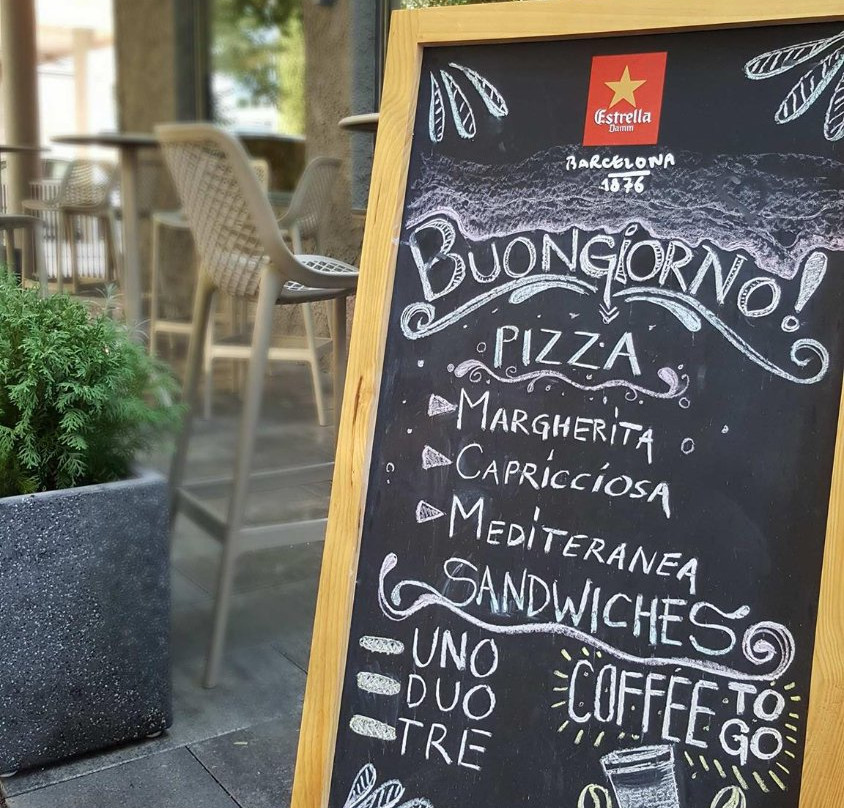 Estrella
Damm
BARCELONA
1876
BUONGiORNO!
PIZZA
MARGHERiTA
CAPRiCCiOSA
MEDiTERANEA
SANDWICHES
UNO
DUO
TRE
COFFEE TO
GO